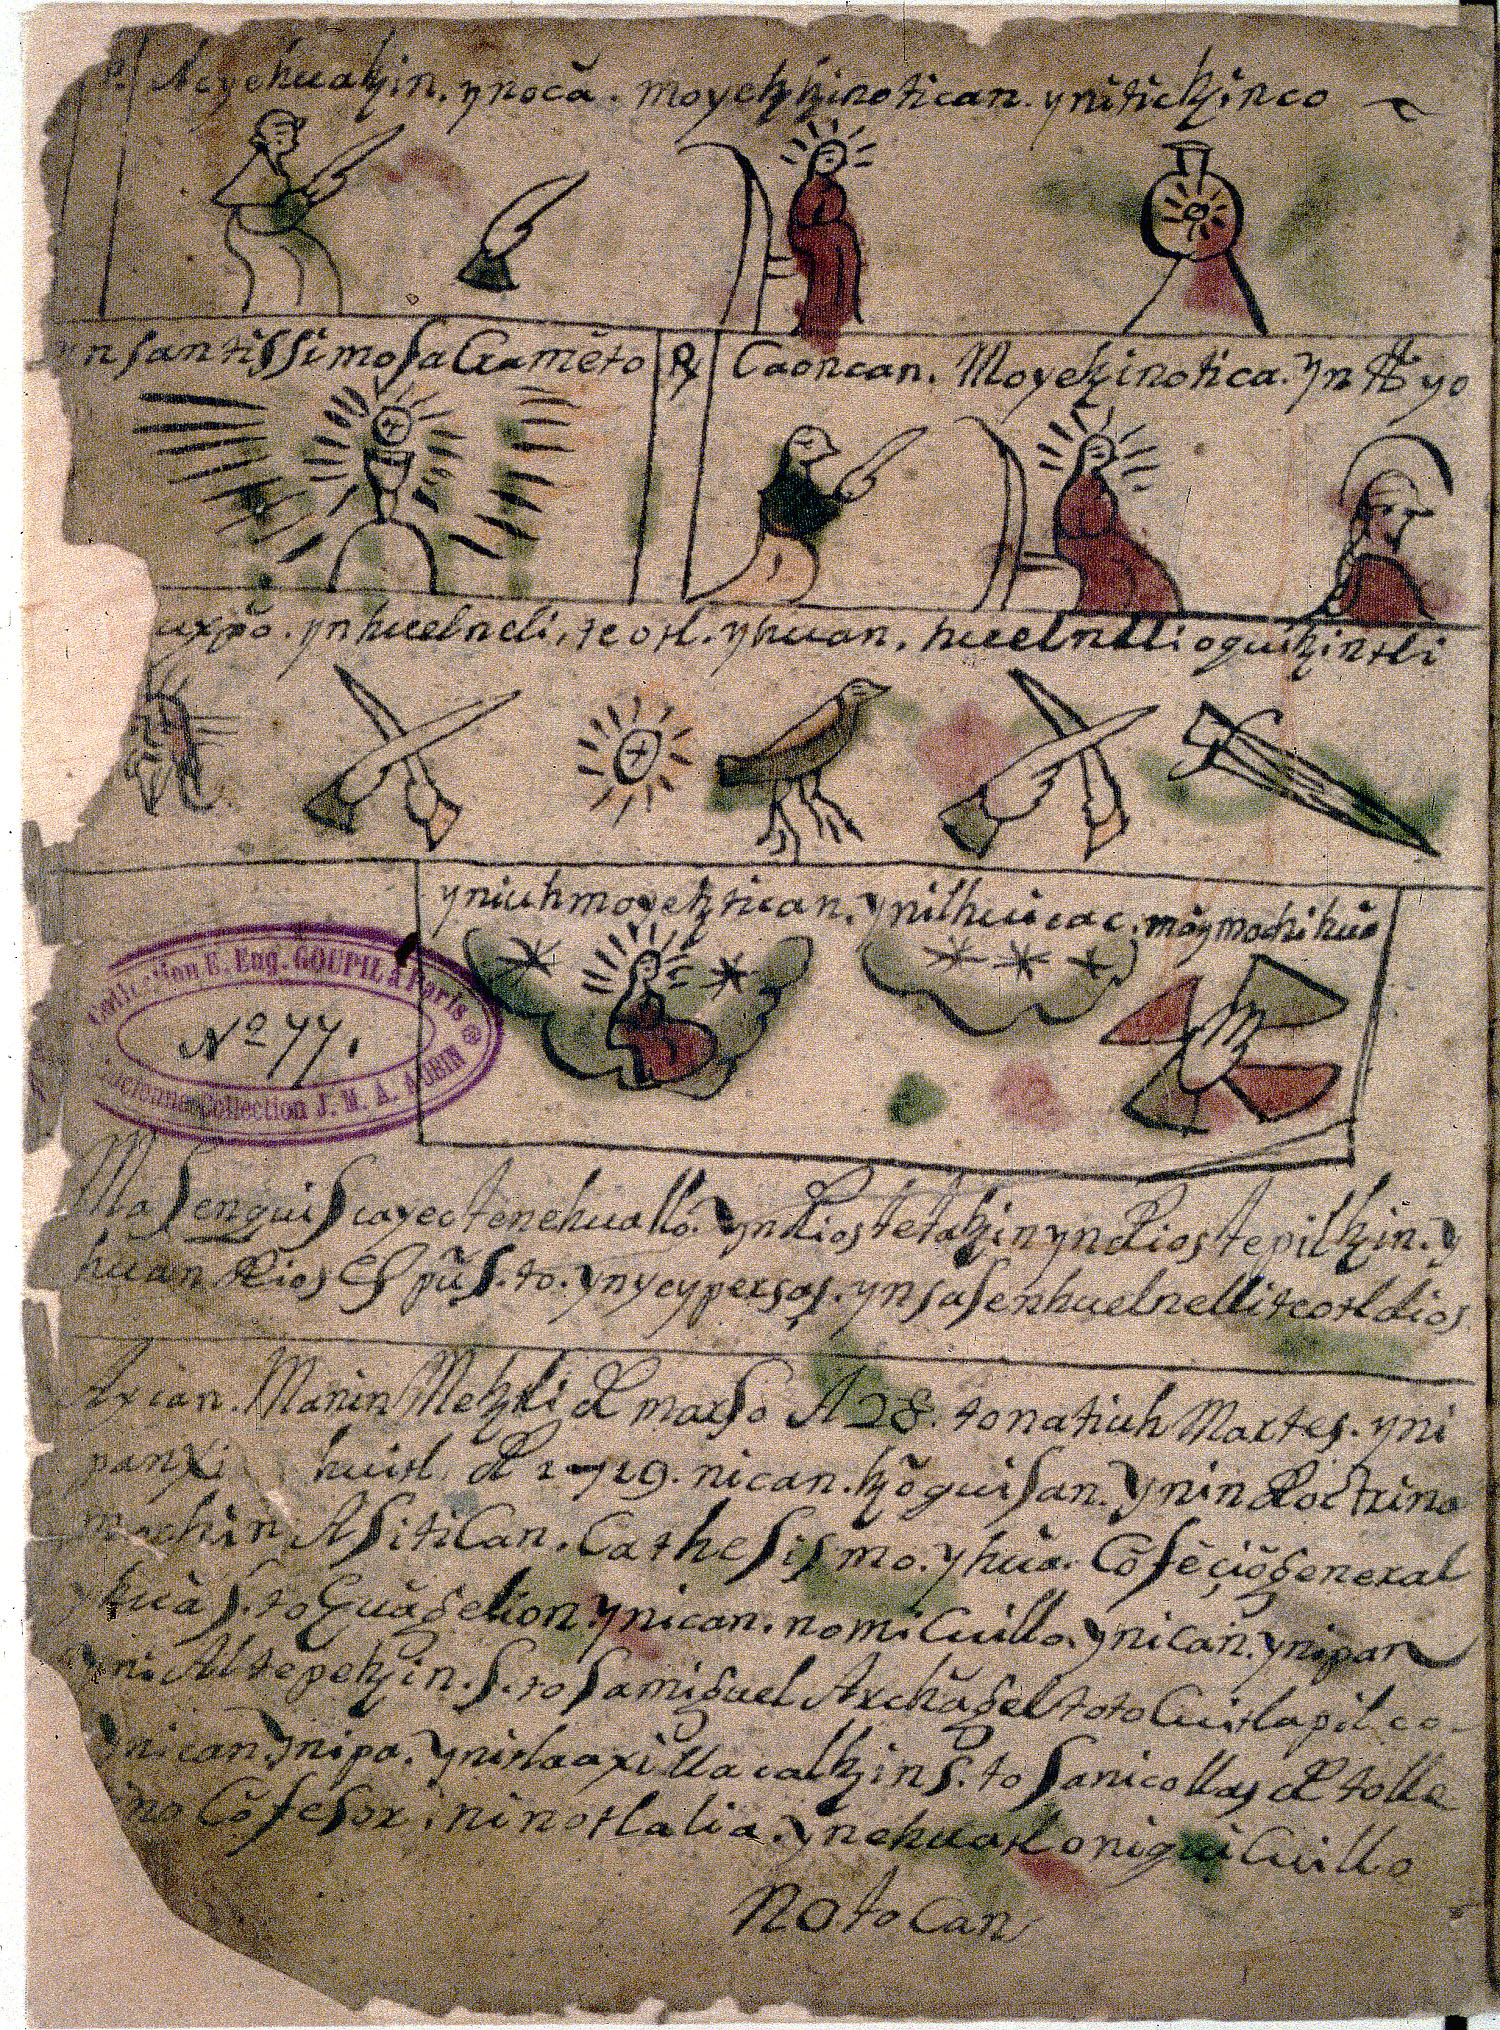 Acyehuatzin. ynocă. moyetztzinotican. ynitictzinco
yn santissimo sacramẽto ꝶ Caoncan. Moyetzinotica. yn tto yo
uxpõ. yn huelneli, teotl. yhuan. huelnelli oquitzintli
yniuh moyetztican. ynilhuicac. mã ymochihuă
Collection E. Eug. GOUPIL à Paris
Nº 77.
Ancienne Collection J. M. A. AUBIN
Ma senquiscayectenehualló. yn dios tetatzin yn dios tepiltzin. y
huan dios Espũ s.to. yn yey persas. yn sasen huelnelli teotl dios
Axcan. Manin Metztli de marso A 28. tonatiuh Martes. yni
panxi huitl de 1719. nican. tzõquisan. ynin doctrina
mochin Asitican. Cathesismo. yhuă. Cõfẽçiõ general
huă s.to Euăgelion ynican. nomicuillo. ynican. ynipan
yni Altepetzin. s.to samiguel Archăgel totocuitlapilco
nican. ynipa. ynitlaaxillacaltzin s.to sanicollas de tolle
no Cõfesor. ninotlalia. ynehuatl oniquicuillo
notocan